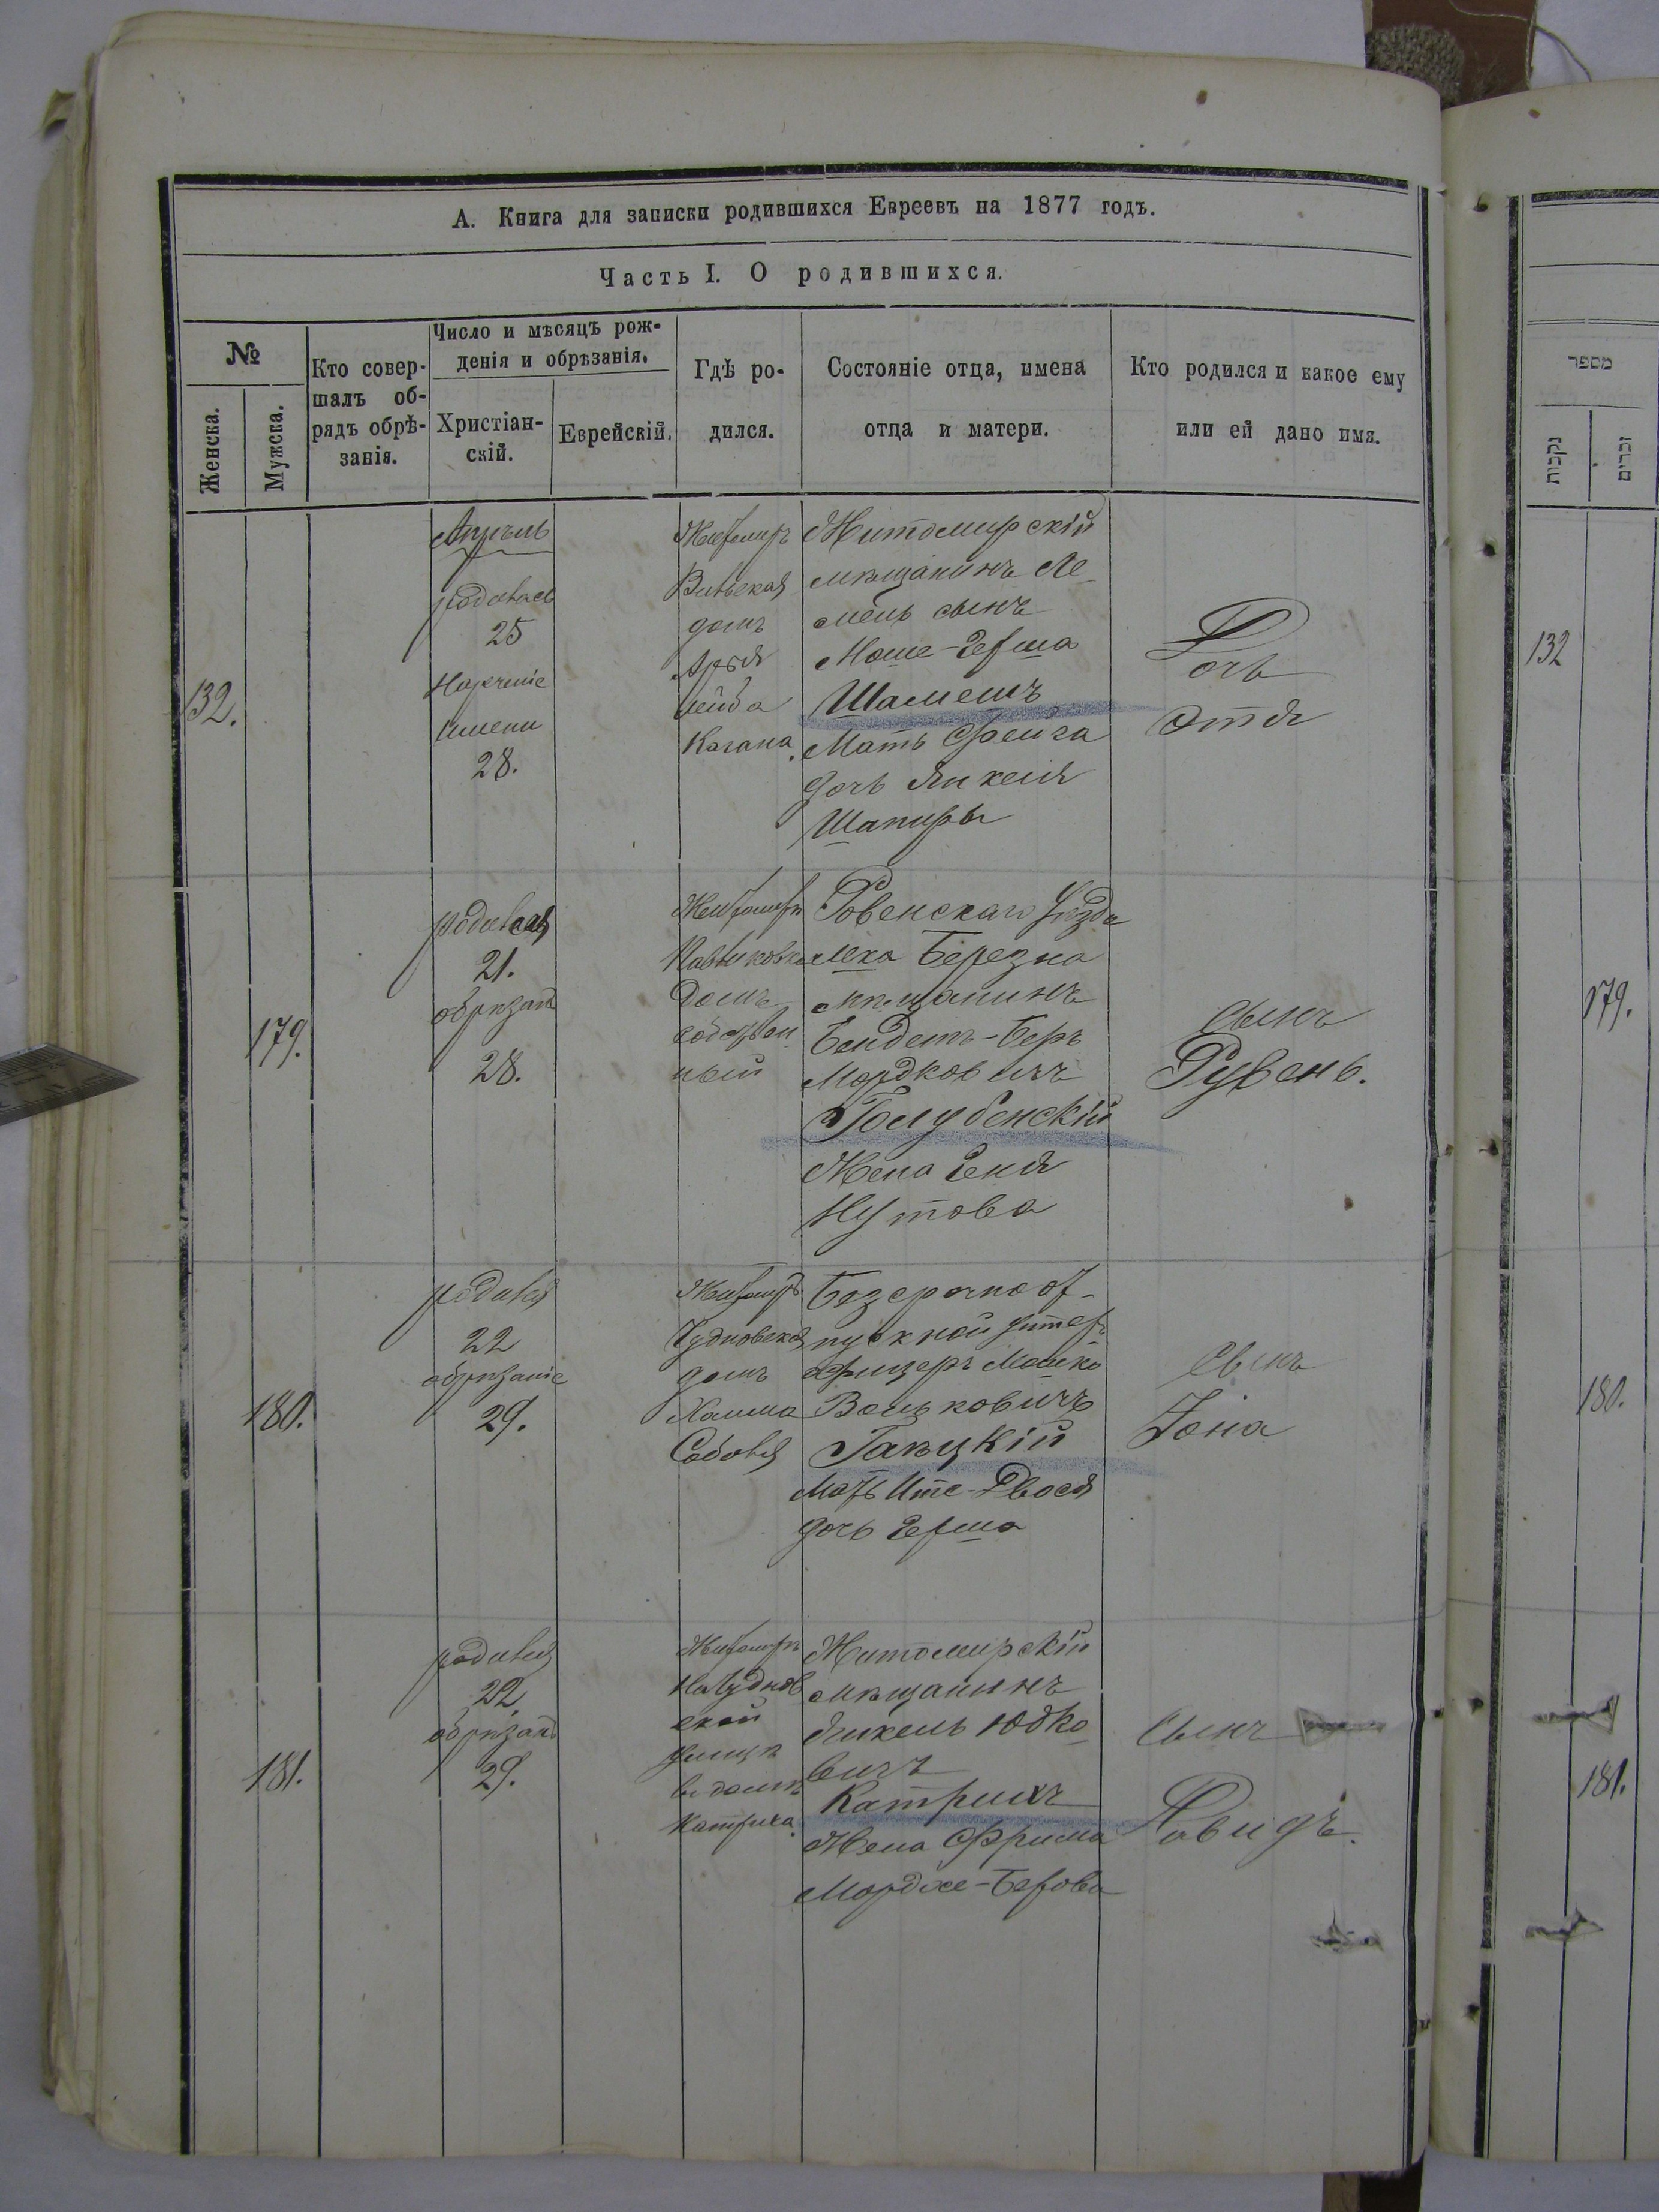 А. Книга для записки родившихся Евреевъ на 1877 годъ.
Часть I. О родившихся.
№
Женска.
Мужска.
Кто совер-
шалъ об-
рядъ обрѣ-
занія.
Число и мѣсяцъ рож-
денія и обрѣзанія.
Христіан-
скій.
Еврейскій.
Гдѣ ро-
дился.
Состояніе отца, имена
отца и матери.
Кто родился и какое ему
или ей дано имя.
132.
Апрѣль
родилась
25
Нареченіе
имени
28.
Житомиръ
Вильская
домъ
Арья
Лейба
Кагана.
Житомирскій
мѣщанинъ Ле-
мель сынъ
Моше-Герша
Шамешъ
Мать Фейга
дочь Янкеля
Шапиры
Дочь
Этя
179.
родился
21.
обрѣзанъ
28.
Житомиръ
домъ
собствен
ный
Ровенскаго Уѣзда
мѣка Березна
мѣщанинъ
Бендетъ-Беръ
Мордковичъ
Голубенскій
Жена Геня
Нутова
Сынъ
Рувень.
180.
родился
22
обрѣзаніе
29.
Житомиръ
Чудновская
домъ
Хаима
Безсрочноот-
пускной унтеръ
офицеръ Мошко
Вольковичъ
Гапуцкій
Мать Ите-Двося
дочь Герша
Сынъ
Іона
181.
родился
22
обрѣзанъ
29.
Житомиръ
На Чуднов
ской
улицѣ
въ домѣ
Катриха.
Житомирскій
мѣщанинъ
Янкель Юдко
вичъ
Катрихъ
Жена Фрима
Мордхе-Берова
Сынъ
Давидъ.
מספר
נקבות
זכרים
132
179.
180.
181.